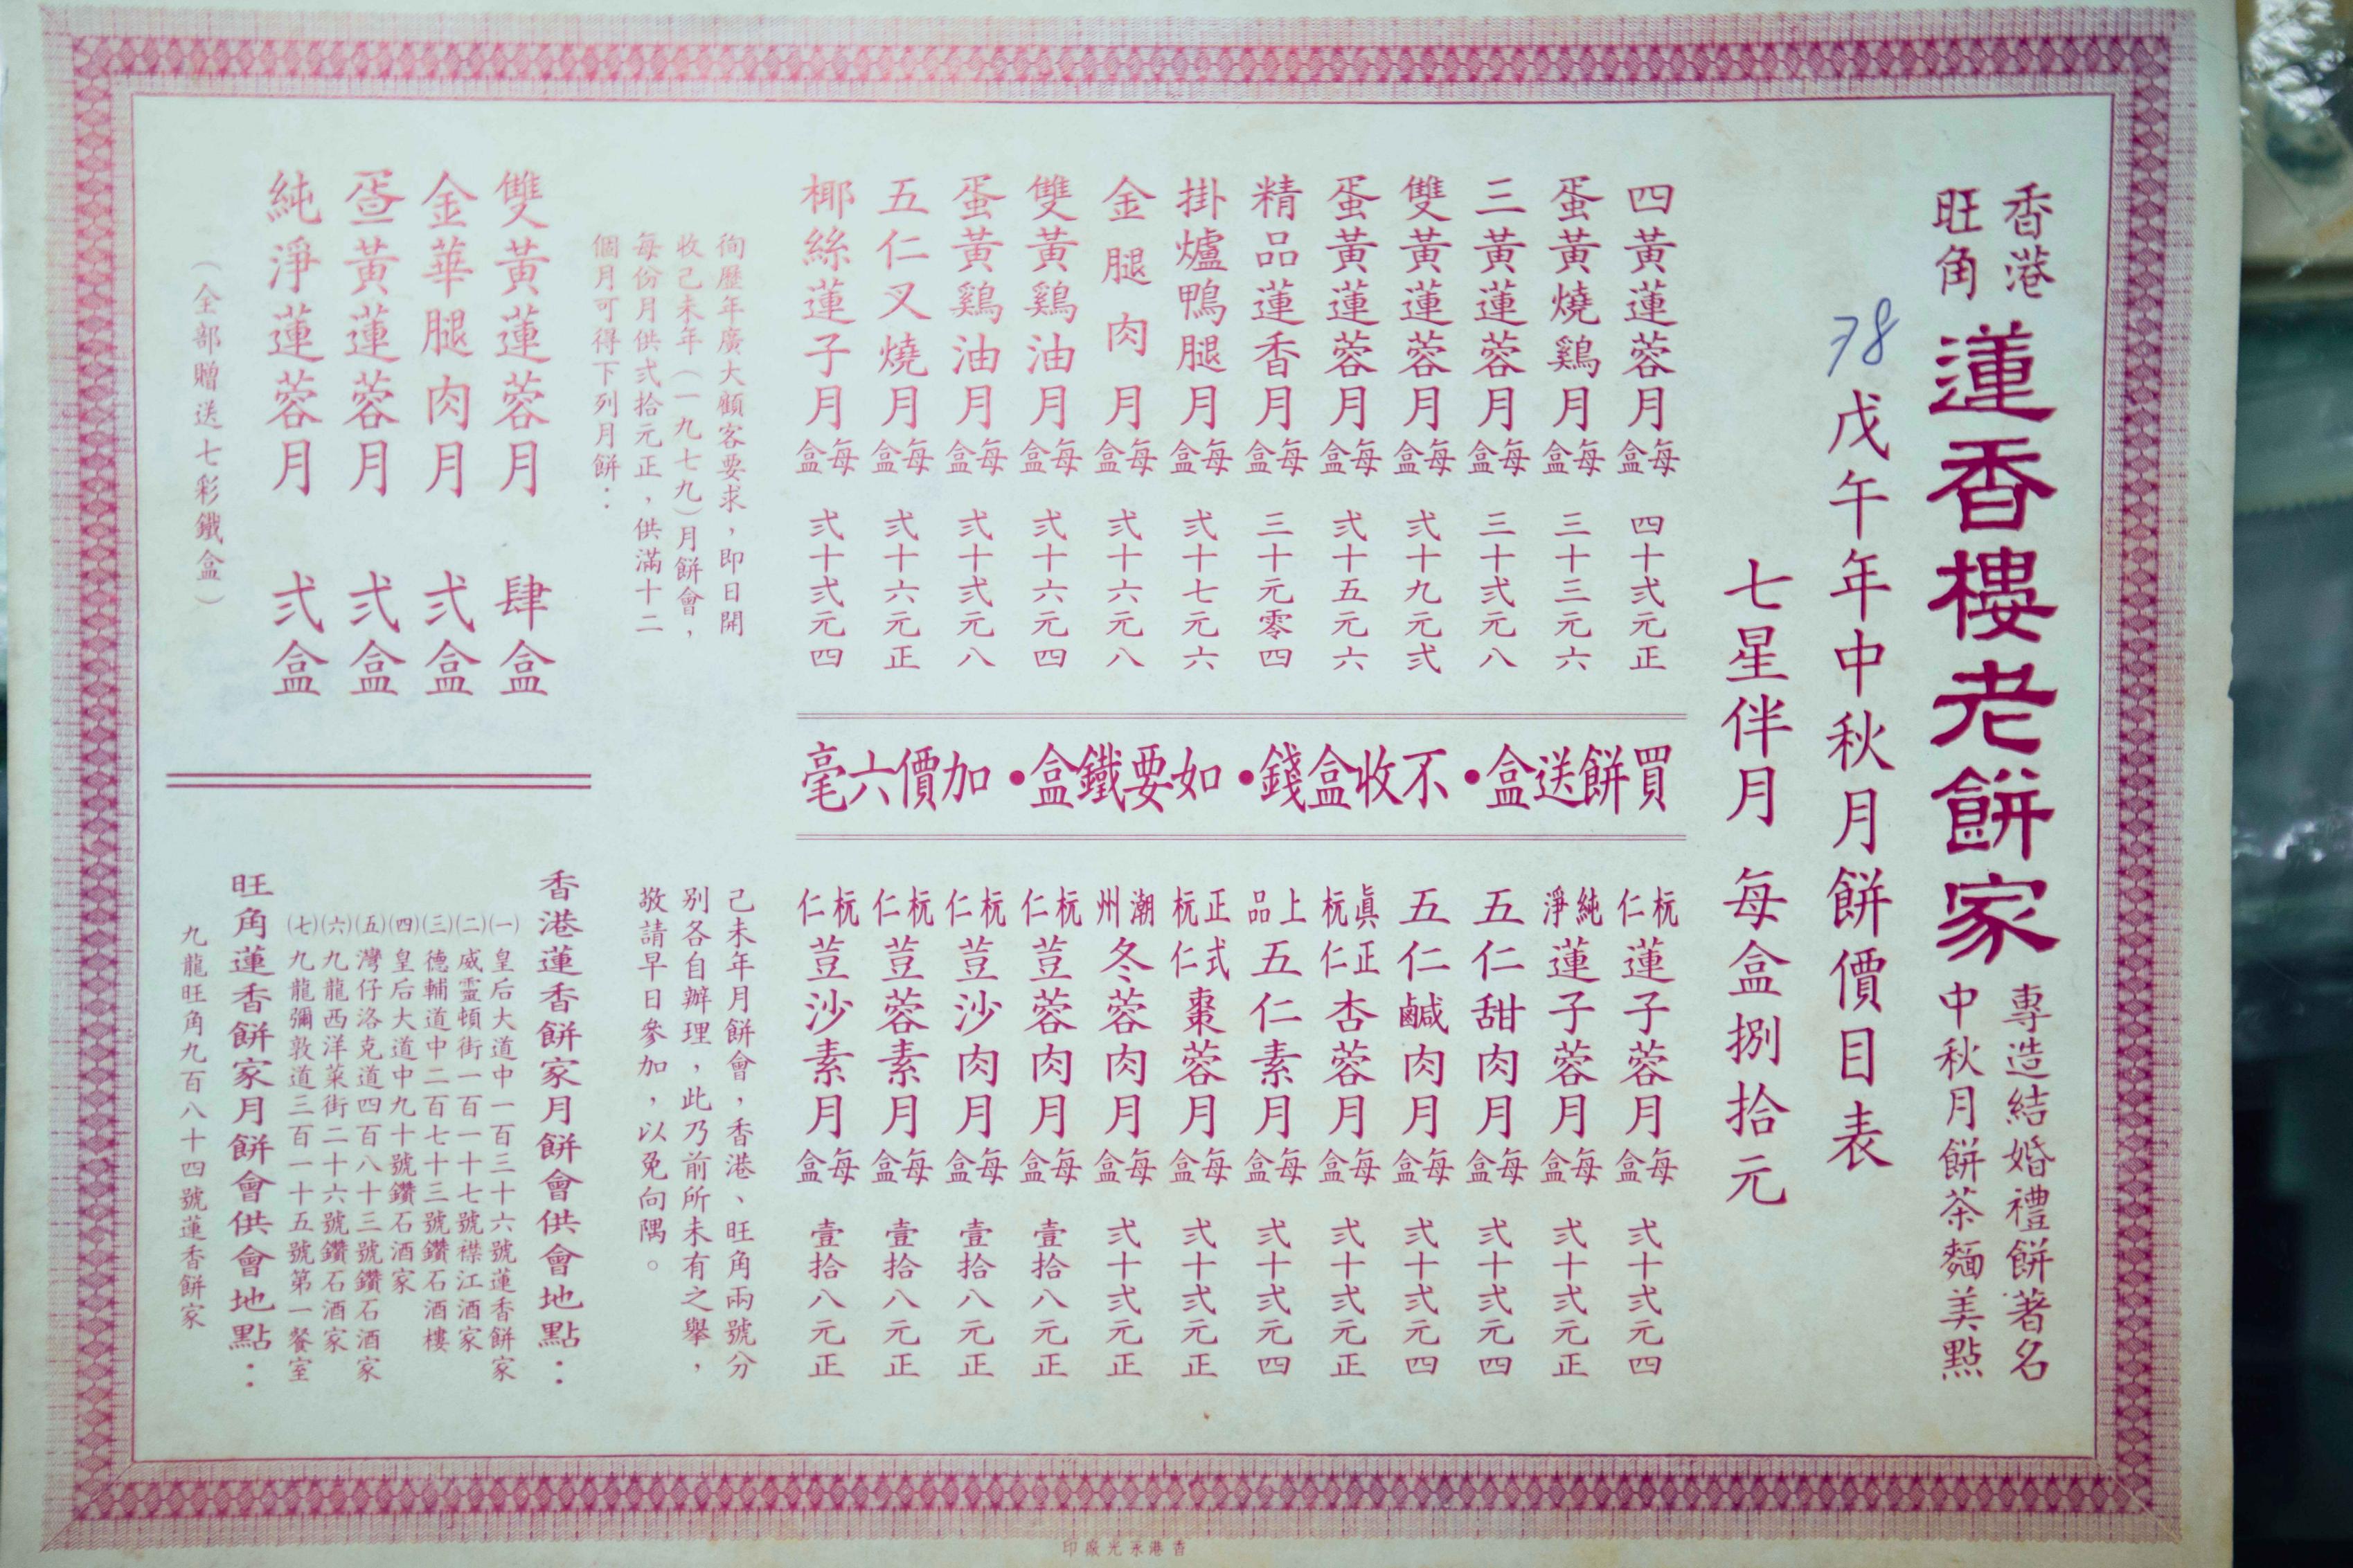 香港
旺角
蓮香樓老餅家
專造結婚禮餅著名
中秋月餅茶麵美點
78
戊午年中秋月餅價目表
七星伴月 每盒捌拾元
四黃蓮蓉月 每盒 四十弍元正
蛋黃燒鷄月 每盒 三十三元六
三黃蓮蓉月 每盒 三十弍元八
雙黃蓮蓉月 每盒 弍十九元弍
蛋黃蓮蓉月 每盒 弍十五元六
精品蓮香月 每盒 三十元零四
掛爐鴨腿月 每盒 弍十七元六
金腿肉月 每盒 弍十六元八
雙黃鷄油月 每盒 弍十六元四
蛋黃鷄油月 每盒 弍十弍元八
五仁叉燒月 每盒 弍十六元正
椰絲蓮子月 每盒 弍十弍元四
買餅送盒•不收盒錢•如要鐵盒•加價六毫
杬仁蓮子蓉月 每盒 弍十弍元四
純淨蓮子蓉月 每盒 弍十弍元正
五仁甜肉月 每盒 弍十弍元四
五仁鹹肉月 每盒 弍十弍元四
眞正杬仁杏蓉月 每盒 弍十弍元正
上品五仁素月 每盒 弍十弍元四
正式杬仁棗蓉月 每盒 弍十弍元正
潮州冬蓉肉月 每盒 弍十弍元正
杬仁荳蓉肉月 每盒 壹拾八元正
杬仁荳沙肉月 每盒 壹拾八元正
杬仁荳蓉素月 每盒 壹拾八元正
杬仁荳沙素月 每盒 壹拾八元正
徇歷年廣大顧客要求，即日開
收己未年（一九七九）月餅會，
每份月供弍拾元正，供滿十二
個月可得下列月餅：
雙黃蓮蓉月 肆盒
金華腿肉月 弍盒
蛋黃蓮蓉月 弍盒
純淨蓮蓉月 弍盒
（全部贈送七彩鐵盒）
己未年月餅會，香港、旺角兩號分
别各自辦理，此乃前所未有之舉，
敬請早日參加，以免向隅。
香港蓮香餅家月餅會供會地點：
(一)皇后大道中一百三十六號蓮香餅家
(二)威靈頓街一百一十七號襟江酒家
(三)德輔道中二百七十三號鑽石酒樓
(四)皇后大道中九十號鑽石酒家
(五)灣仔洛克道四百八十三號鑽石酒家
(六)九龍西洋菜街二十六號鑽石酒家
(七)九龍彌敦道三百一十五號第一餐室
旺角蓮香餅家月餅會供會地點：
九龍旺角九百八十四號蓮香餅家